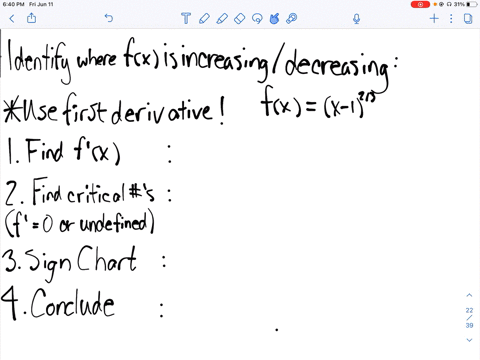 6:40 PM Fri Jun 11
31%
Identify where f(x) is increasing/decreasing:
*Use first derivative! f(x) = (x-1)^2/3
1. Find f'(x) :
2. Find critical #'s :
(f' = 0 or undefined)
3. Sign Chart :
4. Conclude :
22
/
39